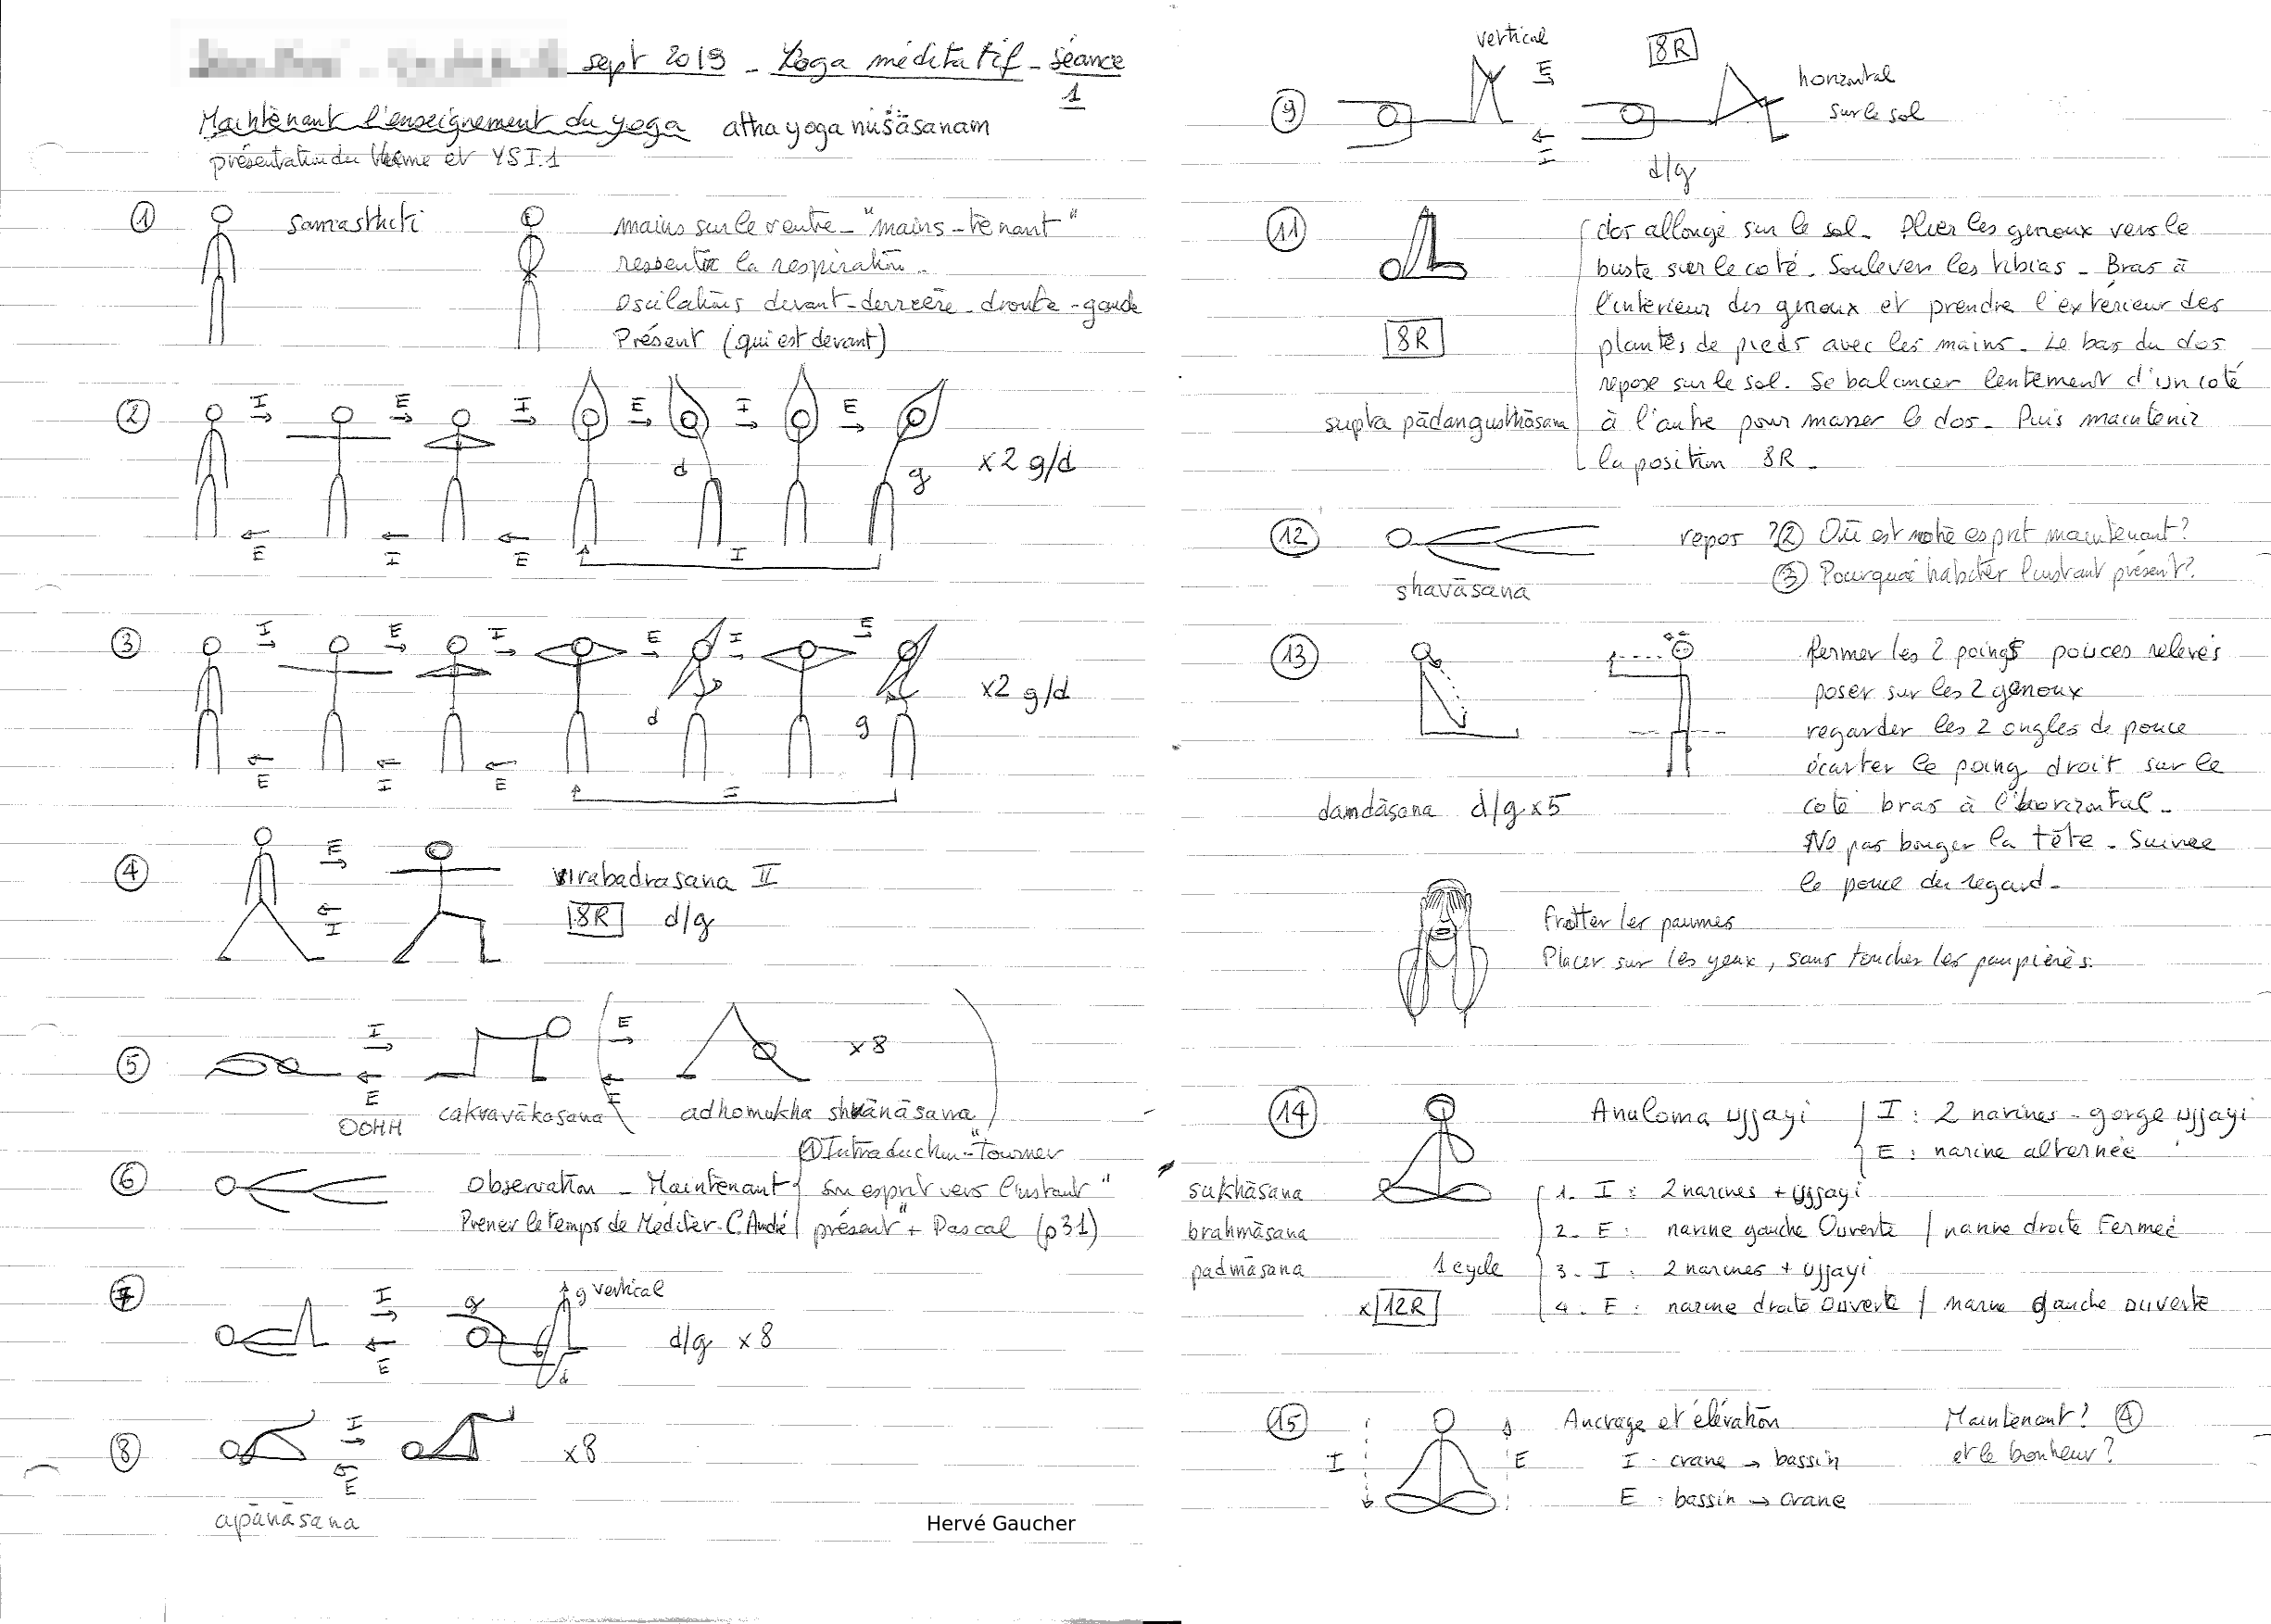 sept 2019 - Yoga méditatif - Séance
1
Maintenant l'enseignement du yoga atha yoga nuśāsanam
présentation du thème et YSI.1
① samasthiti mains sur le ventre - "mains-tenant"
ressentir la respiration.
Oscilations devant-derrière - droite-gauche
Présent (qui est devant)
② I E I E I E
d g x2 g/d
E I E I
③ I E I E I E
d g x2 g/d
E I E I
④ E virabadrasana II
I 8R d/g
⑤ I E x8
E E
OOHH cakravākasana adhomukha shvānāsana
① Introduction "Tourner
⑥ Observation - Maintenant son esprit vers l'instant"
Prener le temps de Méditer - C. André présent" + Pascal (p31)
⑦ I g g vertical
E d d/g x8
⑧ I x8
E
apānāsana
Hervé Gaucher
vertical 8R
⑨ E horizontal
sur le sol
I d/g
⑪ dos allongé sur le sol. Plier les genoux vers le
buste sur le coté. Soulever les tibias - Bras à
l'intérieur des genoux et prendre l'extérieur des
8R plantes de pieds avec les mains. Le bas du dos
repose sur le sol. Se balancer lentement d'un coté
supta pādangusthāsana à l'autre pour masser le dos. Puis maintenir
la position 8R.
⑫ repos ?② Où est notre esprit maintenant?
shavāsana ③ Pourquoi habiter l'instant présent?
⑬ fermer les 2 poings pouces relevés
poser sur les 2 genoux
regarder les 2 ongles de pouce
écarter le poing droit sur le
damdāsana d/g x5 coté bras à l'horizontal.
Ne pas bouger la tête. Suivre
le pouce du regard.
Frotter les paumes
Placer sur les yeux, sans toucher les paupières.
⑭ Anuloma ujjayi I : 2 narines - gorge ujjayi
E : narine alternée
sukhāsana 1. I : 2 narines + ujjayi
brahmāsana 2. E : narine gauche Ouverte / narine droite Fermée
padmāsana 1 cycle 3. I : 2 narines + ujjayi
x 12R 4. E : narine droite ouverte / narine gauche ouverte
⑮ Ancrage et élévation Maintenant? ④
I E I : crane → bassin et le bonheur?
E : bassin → crane